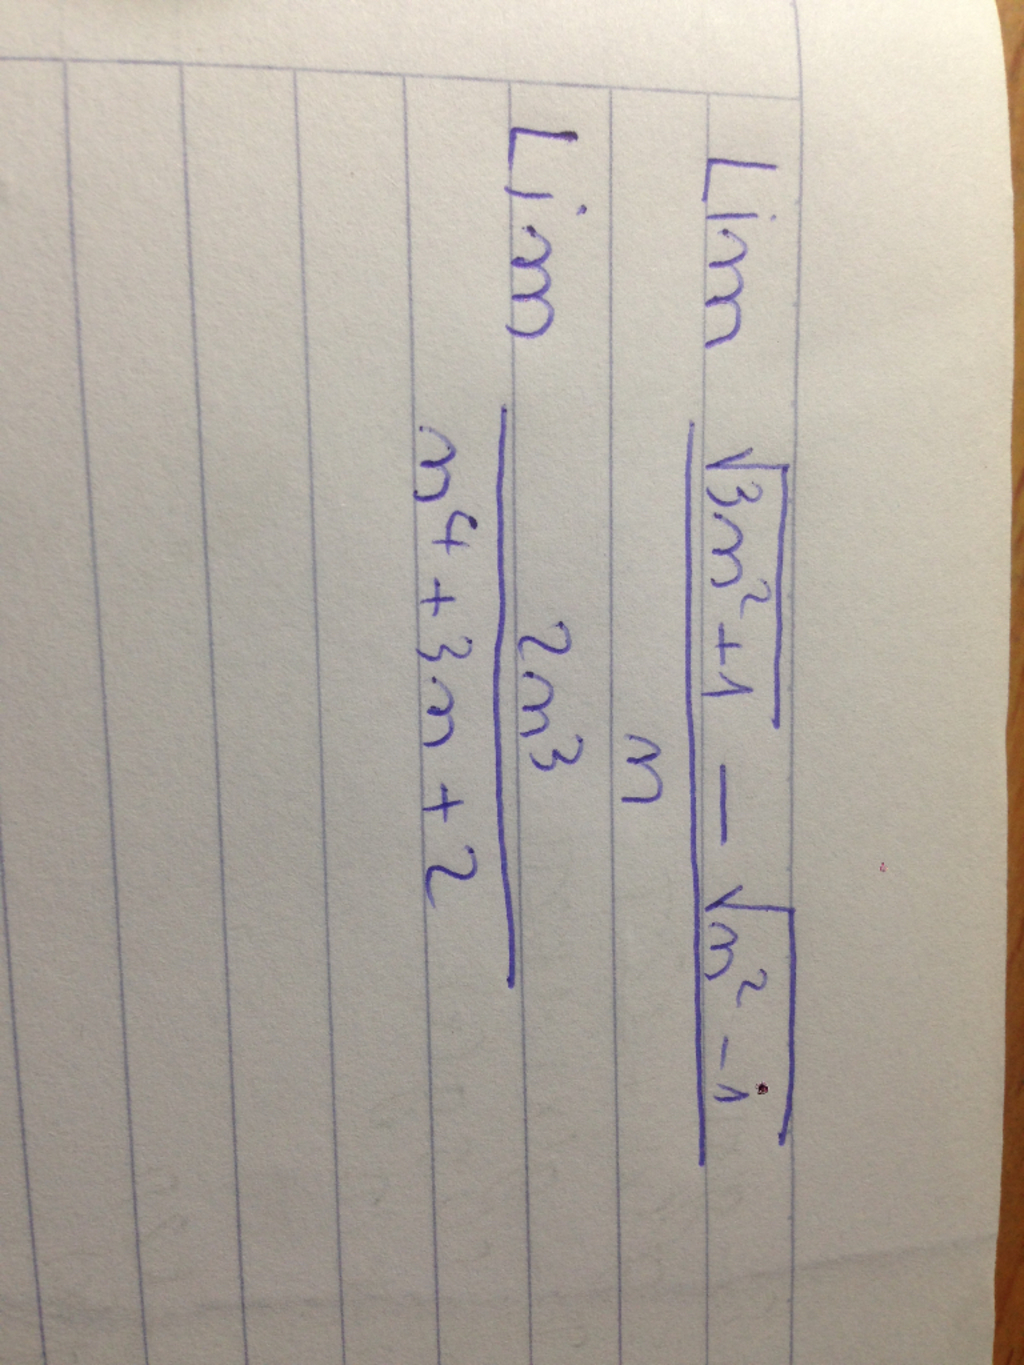 Lim (√(3n²+1) − √(n²−1)) / n
Lim 2n³ / (n⁴+3n+2)